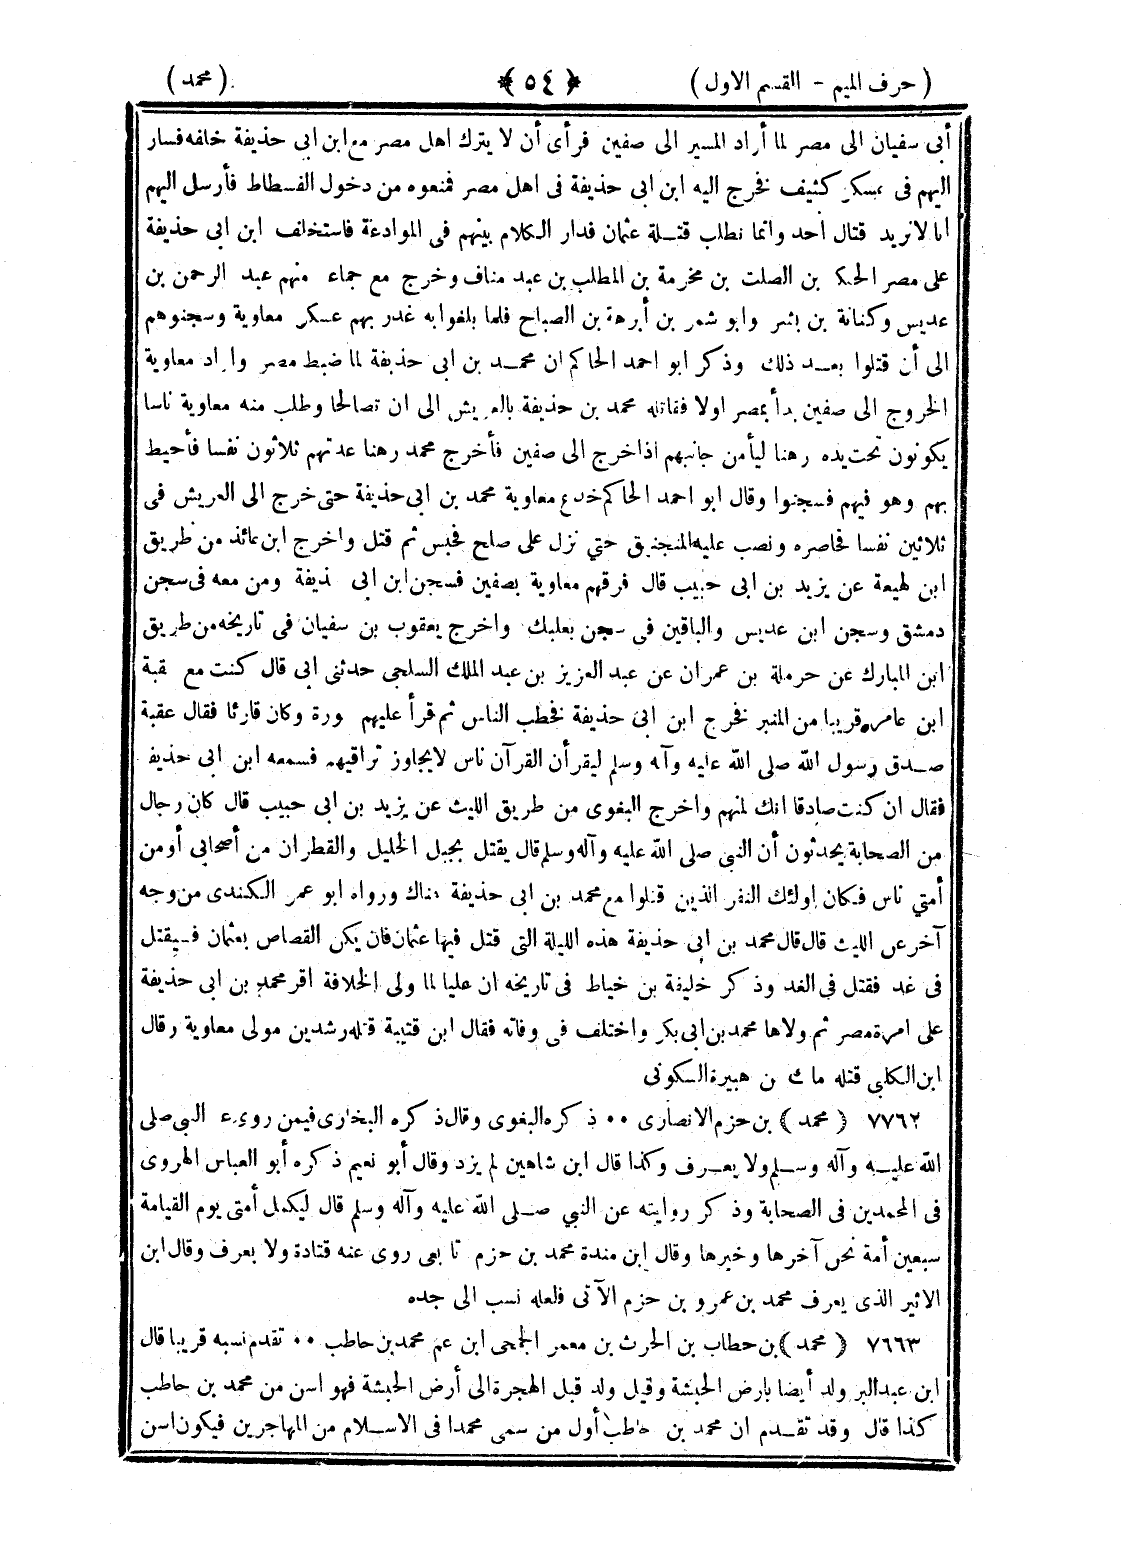 ( حرف الميم - القسم الاول ) ﴿ ٥٤ ﴾ ( محمد )
أبى سفيان الى مصر لما أراد المسير الى صفين فرأى أن لا يترك اهل مصر مع ابن ابى حذيفة خلفه فسار
اليهم فى عسكر كثيف فخرج اليه ابن ابى حذيفة فى اهل مصر فمنعوه من دخول الفسطاط فأرسل اليهم
انا لا نريد قتال أحد وانما نطلب قتلة عثمان فدار الكلام بينهم فى الموادعة فاستخلف ابن ابى حذيفة
على مصر الحكم بن الصلت بن مخرمة بن المطلب بن عبد مناف وخرج مع جماعة منهم عبد الرحمن بن
عديس وكنانة بن بشر وابو شمر بن أبرهة بن الصباح فلما بلغوا به غدر بهم عسكر معاوية وسجنوهم
الى أن قتلوا بعد ذلك وذكر ابو احمد الحاكم ان محمد بن ابى حذيفة لما ضبط مصر واراد معاوية
الخروج الى صفين بدأ بمصر اولا فقاتله محمد بن حذيفة بالعريش الى ان تصالحا وطلب منه معاوية ناسا
يكونون تحت يده رهنا ليأمن جانبهم اذا خرج الى صفين فأخرج محمد رهنا عدتهم ثلاثون نفسا فأحيط
بهم وهو فيهم فسجنوا وقال ابو احمد الحاكم خدع معاوية محمد بن ابى حذيفة حتى خرج الى العريش فى
ثلاثين نفسا فحاصره ونصب عليه المنجنيق حتي نزل على صلح فحبس ثم قتل واخرج ابن عائذ من طريق
ابن لهيعة عن يزيد بن ابى حبيب قال فرقهم معاوية بصفين فسجن ابن ابى حذيفة ومن معه فى سجن
دمشق وسجن ابن عديس والباقين فى سجن بعلبك واخرج يعقوب بن سفيان فى تاريخه من طريق
ابن المبارك عن حرملة بن عمران عن عبد العزيز بن عبد الملك السلجى حدثنى ابى قال كنت مع عقبة
ابن عامر قريبا من المنبر فخرج ابن ابى حذيفة فخطب الناس ثم قرأ عليهم سورة وكان قارئا فقال عقبة
صدق رسول الله صلى الله عليه وآله وسلم ليقرأن القرآن ناس لا يجاوز تراقيهم فسمعه ابن ابى حذيفة
فقال ان كنت صادقا انك لمنهم واخرج البغوى من طريق الليث عن يزيد بن ابى حبيب قال كان رجال
من الصحابة يحدثون أن النبي صلى الله عليه وآله وسلم قال يقتل بجبل الخليل والقطران من أصحابى أو من
أمتي ناس فكان اولئك النفر الذين قتلوا مع محمد بن ابى حذيفة هناك ورواه ابو عمر الكندى من وجه
آخر عن الليث قال قال محمد بن ابى حذيفة هذه الليلة التى قتل فيها عثمان فان يكن القصاص بعثمان فسيقتل
فى غد فقتل فى الغد وذكر خليفة بن خياط فى تاريخه ان عليا لما ولى الخلافة اقر محمد بن ابى حذيفة
على امرة مصر ثم ولاها محمد بن ابى بكر واختلف فى وفاته فقال ابن قتيبة قتله رشدين مولى معاوية وقال
ابن الكلبى قتله مالك بن هبيرة السكونى
٧٧٦٢ ( محمد ) بن حزم الانصارى ٠٠ ذكره البغوى وقال ذكره البخارى فيمن روى عن النبى صلى
الله عليه وآله وسلم ولا يعرف وكذا قال ابن شاهين لم يزد وقال أبو نعيم ذكره أبو العباس الهروى
فى المحمدين فى الصحابة وذكر روايته عن النبي صلى الله عليه وآله وسلم قال ليكمل أمتى يوم القيامة
سبعين أمة نحن آخرها وخيرها وقال ابن مندة محمد بن حزم تابعى روى عنه قتادة ولا يعرف وقال ابن
الاثير الذى يعرف محمد بن عمرو بن حزم الآتى فلعله نسب الى جده
٧٦٦٣ ( محمد ) بن حطاب بن الحرث بن معمر الجمحى ابن عم محمد بن حاطب ٠٠ تقدم نسبه قريبا قال
ابن عبد البر ولد أيضا بارض الحبشة وقيل ولد قبل الهجرة الى أرض الحبشة فهو اسن من محمد بن حاطب
كذا قال وقد تقدم ان محمد بن حاطب أول من سمى محمدا فى الاسلام من المهاجرين فيكون اسن